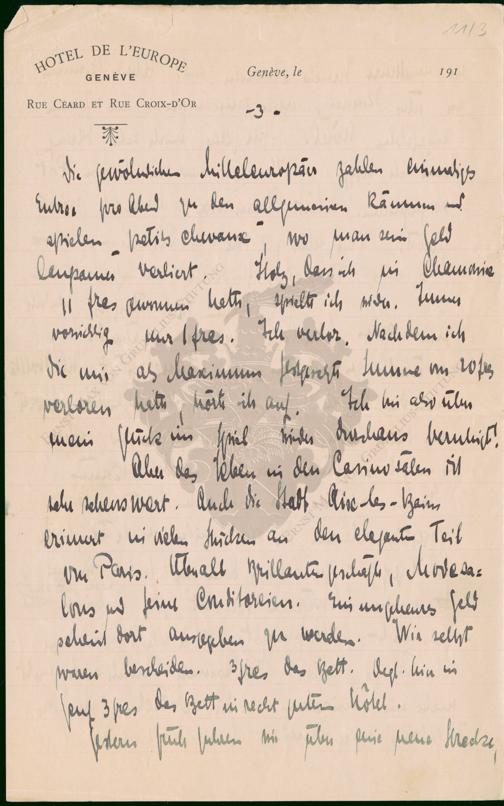 11/3
HOTEL DE L'EUROPE
GENÈVE
RUE CÉARD ET RUE CROIX-D'OR
Genève, le 191
-3-
Die gewöhnlichen Mitteleuropäer zahlen einmaliges
Entree pro Abend zu den allgemeinen Räumen und
spielen "petits chevaux", wo man sein Geld
langsamer verliert. Stolz, dass ich in Chamonix
11 frcs gewonnen hatte, spielte ich wieder. Immer
vorsichtig nur 1 frcs. Ich verlor. Nachdem ich
die mir als Maximum festgesetzte Summe von 20 frcs
verloren hatte, hörte ich auf. Ich bin also über
mein Glück im Spiel wieder durchaus beruhigt.
Aber das Leben in den Casinosälen ist
sehr sehenswert. Auch die Stadt Aix-les-Bains
erinnert in vielen Stücken an den eleganten Teil
von Paris. Überall Brillantengeschäfte, Modesa-
lons und feine Conditoreien. Ein ungeheures Geld
scheint dort ausgegeben zu werden. Wir selbst
waren bescheiden. 3 frcs das Bett. Degl. hier in
Genf 3 frcs das Bett in recht gutem Hôtel.
Gestern früh fuhren wir über eine neue Strecke,